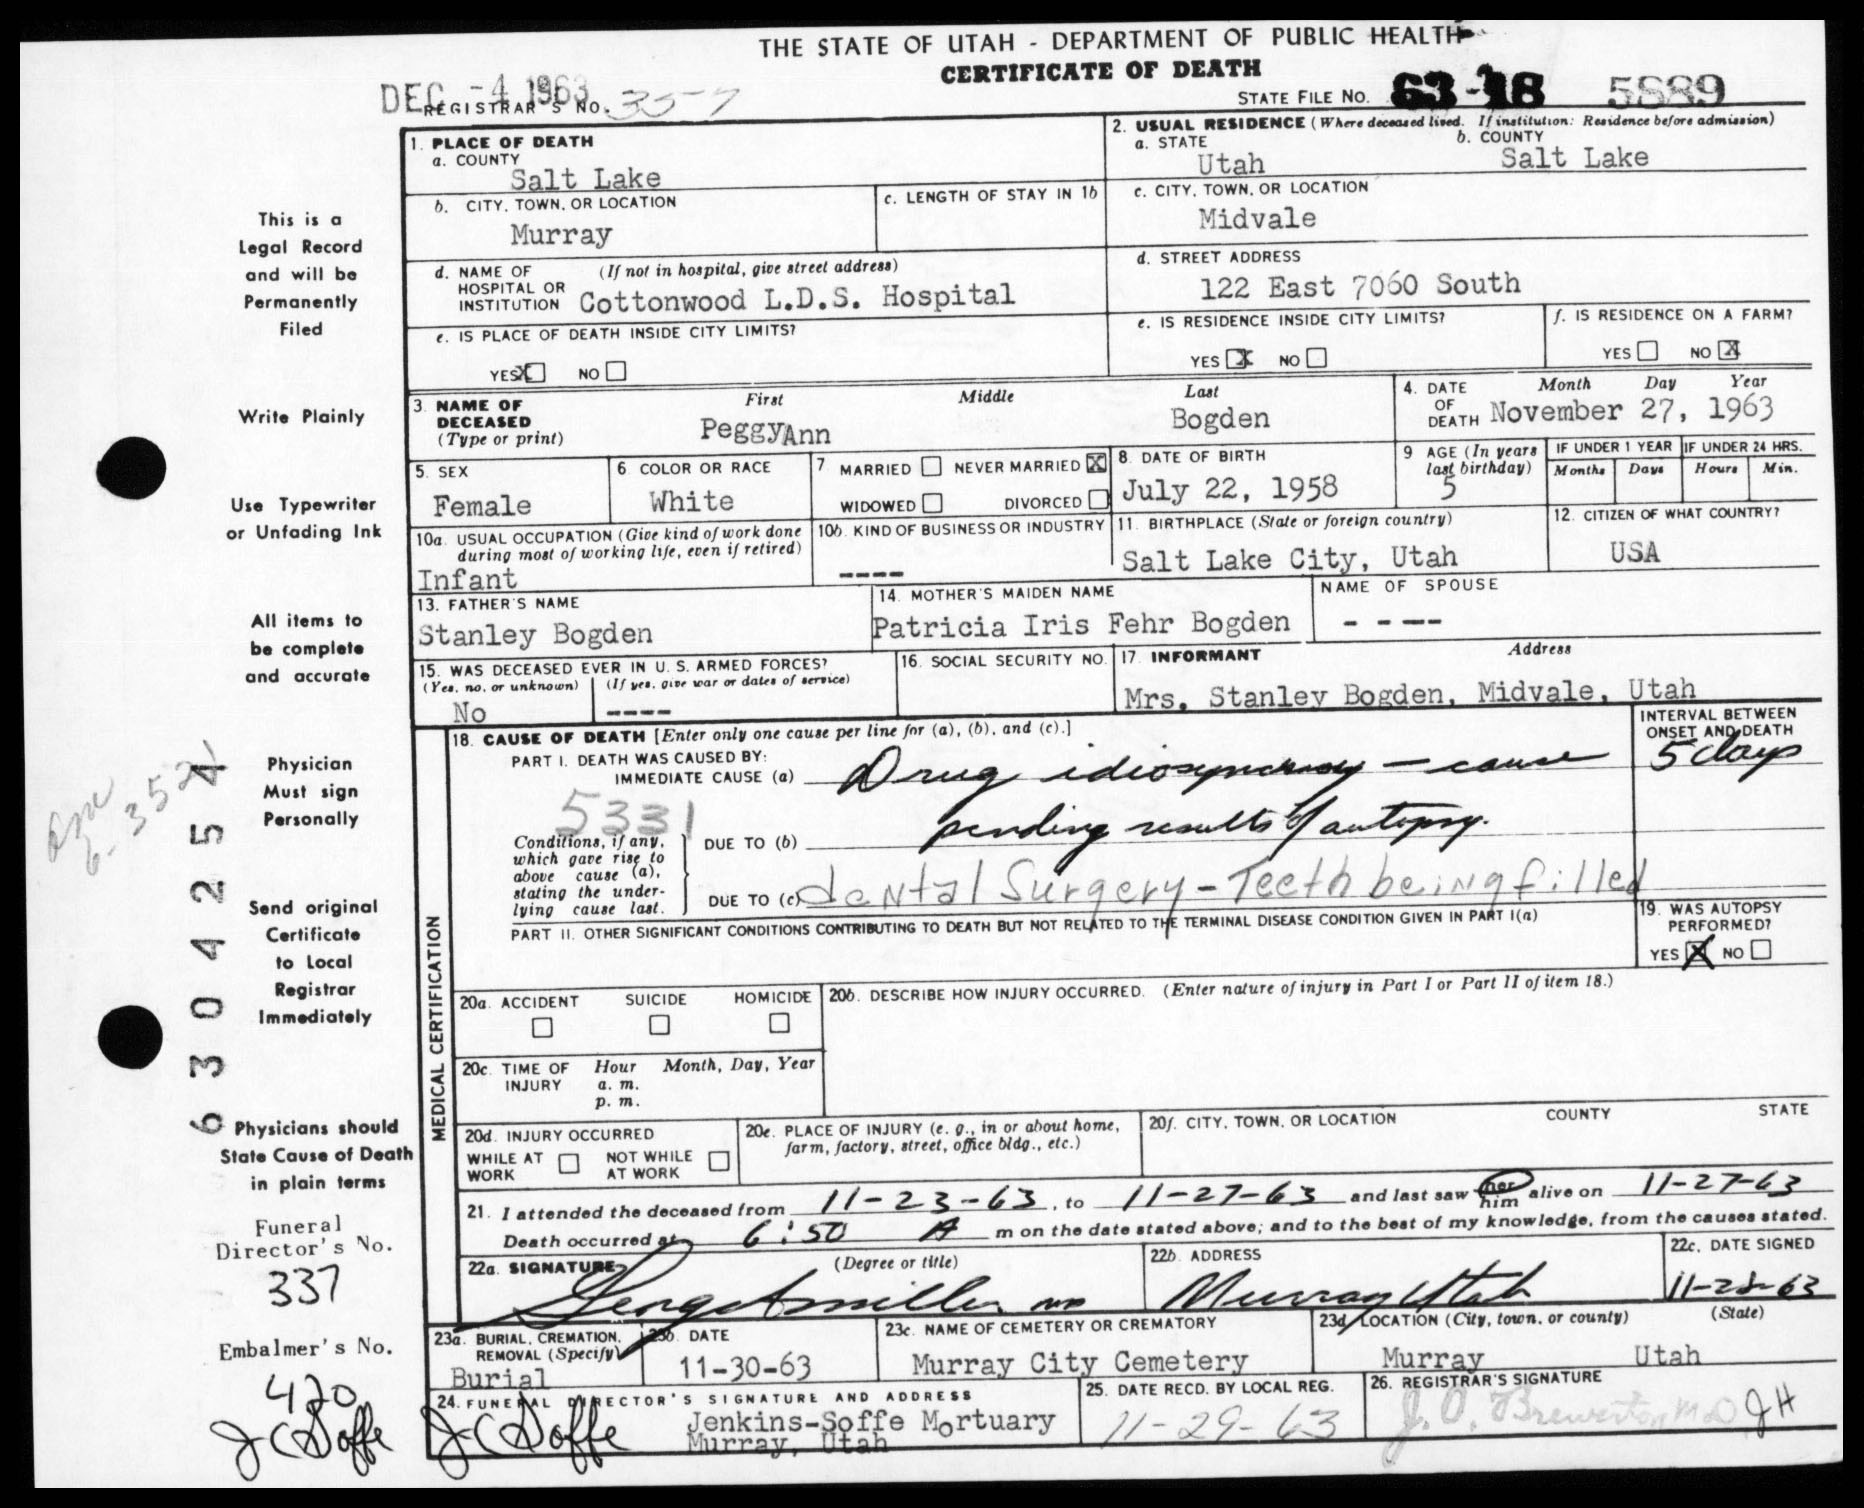 THE STATE OF UTAH - DEPARTMENT OF PUBLIC HEALTH
CERTIFICATE OF DEATH
DEC -4 1963
REGISTRAR'S NO. 357
STATE FILE NO. 63-18 5889
1. PLACE OF DEATH
a. COUNTY
Salt Lake
2. USUAL RESIDENCE (Where deceased lived. If institution: Residence before admission)
a. STATE
Utah
b. COUNTY
Salt Lake
b. CITY, TOWN, OR LOCATION
Murray
c. LENGTH OF STAY IN 1b
c. CITY, TOWN, OR LOCATION
Midvale
d. NAME OF HOSPITAL OR INSTITUTION (If not in hospital, give street address)
Cottonwood L.D.S. Hospital
d. STREET ADDRESS
122 East 7060 South
e. IS PLACE OF DEATH INSIDE CITY LIMITS?
YES X NO
e. IS RESIDENCE INSIDE CITY LIMITS?
YES X NO
f. IS RESIDENCE ON A FARM?
YES NO X
3. NAME OF DECEASED (Type or print)
First Middle Last
PeggyAnn Bogden
4. DATE OF DEATH Month Day Year
November 27, 1963
5. SEX
Female
6. COLOR OR RACE
White
7. MARRIED NEVER MARRIED X
WIDOWED DIVORCED
8. DATE OF BIRTH
July 22, 1958
9. AGE (In years last birthday)
5
IF UNDER 1 YEAR
Months Days
IF UNDER 24 HRS.
Hours Min.
10a. USUAL OCCUPATION (Give kind of work done during most of working life, even if retired)
Infant
10b. KIND OF BUSINESS OR INDUSTRY
----
11. BIRTHPLACE (State or foreign country)
Salt Lake City, Utah
12. CITIZEN OF WHAT COUNTRY?
USA
13. FATHER'S NAME
Stanley Bogden
14. MOTHER'S MAIDEN NAME
Patricia Iris Fehr Bogden
NAME OF SPOUSE
- - --
15. WAS DECEASED EVER IN U. S. ARMED FORCES?
(Yes, no, or unknown) (If yes, give war or dates of service)
No ----
16. SOCIAL SECURITY NO.
17. INFORMANT Address
Mrs. Stanley Bogden, Midvale, Utah
MEDICAL CERTIFICATION
18. CAUSE OF DEATH [Enter only one cause per line for (a), (b), and (c).]
INTERVAL BETWEEN ONSET AND DEATH
PART I. DEATH WAS CAUSED BY:
IMMEDIATE CAUSE (a) Drug idiosyncrasy - cause
5 days
5331
Conditions, if any, which gave rise to above cause (a), stating the underlying cause last.
DUE TO (b) pending results of autopsy.
DUE TO (c) dental Surgery - Teeth being filled
PART II. OTHER SIGNIFICANT CONDITIONS CONTRIBUTING TO DEATH BUT NOT RELATED TO THE TERMINAL DISEASE CONDITION GIVEN IN PART I(a)
19. WAS AUTOPSY PERFORMED?
YES X NO
20a. ACCIDENT SUICIDE HOMICIDE
20b. DESCRIBE HOW INJURY OCCURRED. (Enter nature of injury in Part I or Part II of item 18.)
20c. TIME OF INJURY Hour Month, Day, Year
a. m.
p. m.
20d. INJURY OCCURRED
WHILE AT WORK NOT WHILE AT WORK
20e. PLACE OF INJURY (e. g., in or about home, farm, factory, street, office bldg., etc.)
20f. CITY, TOWN, OR LOCATION COUNTY STATE
21. I attended the deceased from 11-23-63, to 11-27-63 and last saw her him alive on 11-27-63
Death occurred at 6:50 A m on the date stated above; and to the best of my knowledge, from the causes stated.
22a. SIGNATURE (Degree or title)
22b. ADDRESS
Murray Utah
22c. DATE SIGNED
11-28-63
23a. BURIAL, CREMATION, REMOVAL (Specify)
Burial
23b. DATE
11-30-63
23c. NAME OF CEMETERY OR CREMATORY
Murray City Cemetery
23d. LOCATION (City, town, or county) (State)
Murray Utah
24. FUNERAL DIRECTOR'S SIGNATURE AND ADDRESS
J C Soffe
Jenkins-Soffe Mortuary
Murray, Utah
25. DATE RECD. BY LOCAL REG.
11-29-63
26. REGISTRAR'S SIGNATURE
J. O. Brewerton MD JH
This is a
Legal Record
and will be
Permanently
Filed
Write Plainly
Use Typewriter
or Unfading Ink
All items to
be complete
and accurate
Physician
Must sign
Personally
Send original
Certificate
to Local
Registrar
Immediately
Physicians should
State Cause of Death
in plain terms
6304254
Funeral
Director's No.
337
Embalmer's No.
420
J C Soffe